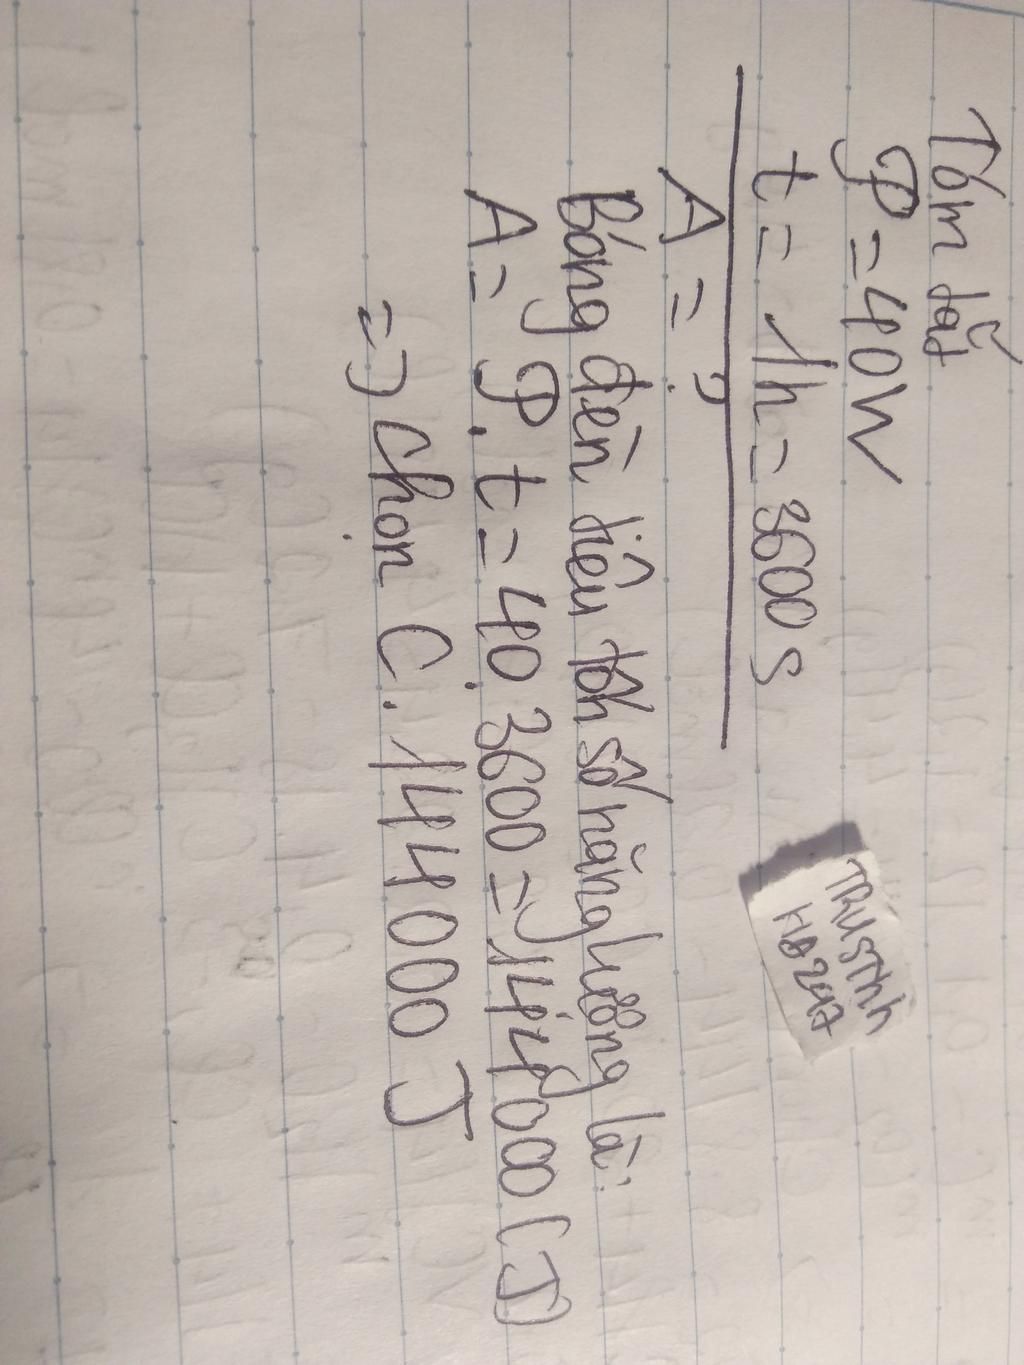 Tóm tắt
P = 40W
t = 1h = 3600 s
A = ?
Bóng đèn tiêu tốn số năng lượng là:
A = P.t = 40.3600 = 144000 (J)
=> Chọn C. 144000 J
TRUSTNH